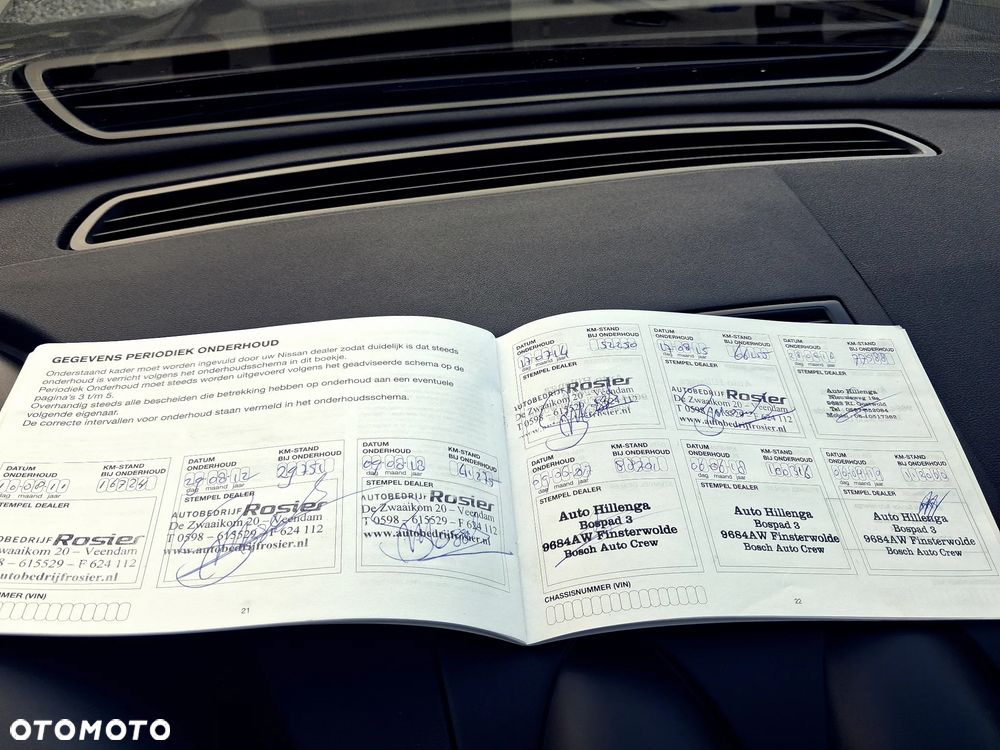 GEGEVENS PERIODIEK ONDERHOUD
Onderstaand kader moet worden ingevuld door uw Nissan dealer zodat duidelijk is dat steeds
onderhoud is verricht volgens het onderhoudsschema in dit boekje.
Periodiek Onderhoud moet steeds worden uitgevoerd volgens het geadviseerde schema op de
pagina's 3 t/m 5.
Overhandig steeds alle bescheiden die betrekking hebben op onderhoud aan een eventuele
volgende eigenaar.
De correcte intervallen voor onderhoud staan vermeld in het onderhoudsschema.
DATUM ONDERHOUD
KM-STAND BIJ ONDERHOUD
16724
dag maand jaar
STEMPEL DEALER
OBEDRIJF Rosier
waaikom 20 – Veendam
– 615529 – F 624 112
utobedrijfrosier.nl
DATUM ONDERHOUD
KM-STAND BIJ ONDERHOUD
29751
dag maand jaar
STEMPEL DEALER
AUTOBEDRIJF Rosier
De Zwaaikom 20 – Veendam
T 0598 – 615529 – F 624 112
www.autobedrijfrosier.nl
DATUM ONDERHOUD
KM-STAND BIJ ONDERHOUD
dag maand jaar
STEMPEL DEALER
AUTOBEDRIJF Rosier
De Zwaaikom 20 – Veendam
T 0598 – 615529 – F 624 112
www.autobedrijfrosier.nl
NUMMER (VIN)
21
DATUM ONDERHOUD
KM-STAND BIJ ONDERHOUD
52250
dag maand jaar
STEMPEL DEALER
AUTOBEDRIJF Rosier
De Zwaaikom 20 – Veendam
T 0598 – 615529 – F 624 112
www.autobedrijfrosier.nl
DATUM ONDERHOUD
KM-STAND BIJ ONDERHOUD
dag maand jaar
STEMPEL DEALER
AUTOBEDRIJF Rosier
De Zwaaikom 20 – Veendam
T 0598 – 615529 – F 624 112
www.autobedrijfrosier.nl
DATUM ONDERHOUD
KM-STAND BIJ ONDERHOUD
dag maand jaar
STEMPEL DEALER
Auto Hillenga
DATUM ONDERHOUD
KM-STAND BIJ ONDERHOUD
dag maand jaar
STEMPEL DEALER
Auto Hillenga
Bospad 3
9684AW Finsterwolde
Bosch Auto Crew
DATUM ONDERHOUD
KM-STAND BIJ ONDERHOUD
dag maand jaar
STEMPEL DEALER
Auto Hillenga
Bospad 3
9684AW Finsterwolde
Bosch Auto Crew
DATUM ONDERHOUD
KM-STAND BIJ ONDERHOUD
dag maand jaar
STEMPEL DEALER
Auto Hillenga
Bospad 3
9684AW Finsterwolde
Bosch Auto Crew
CHASSISNUMMER (VIN)
22
OTOMOTO